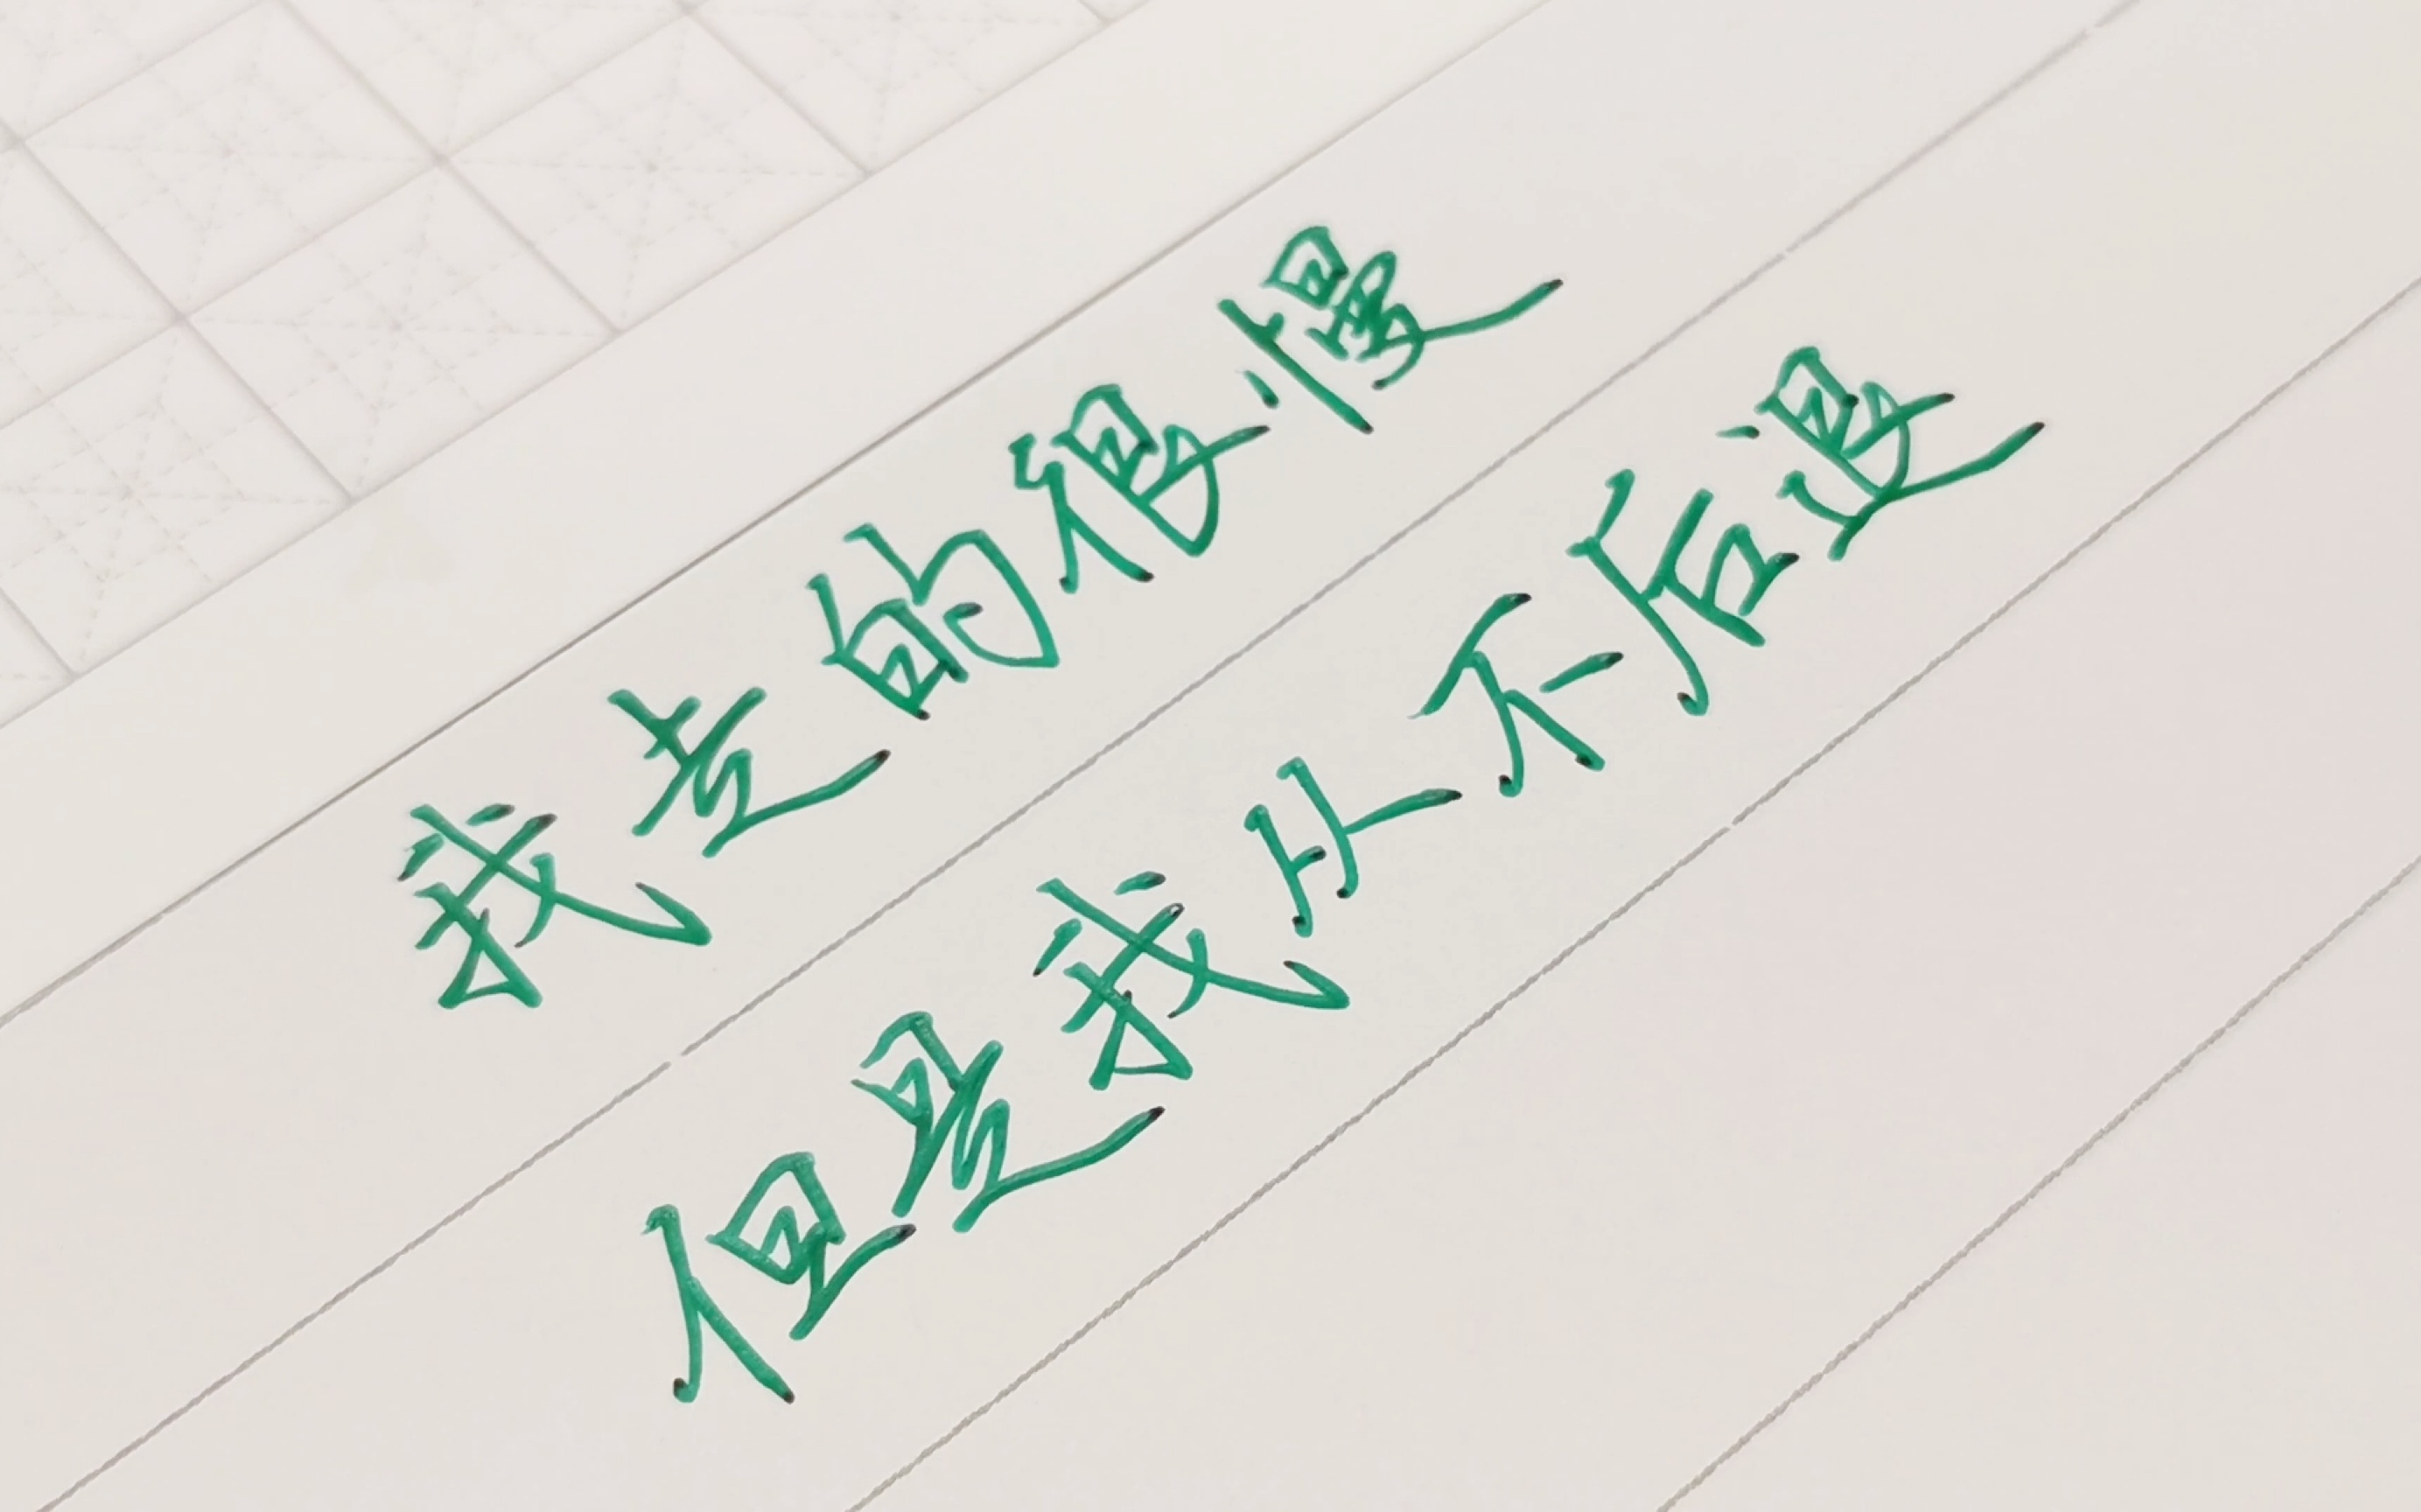 我走的很慢
但是我从不后退